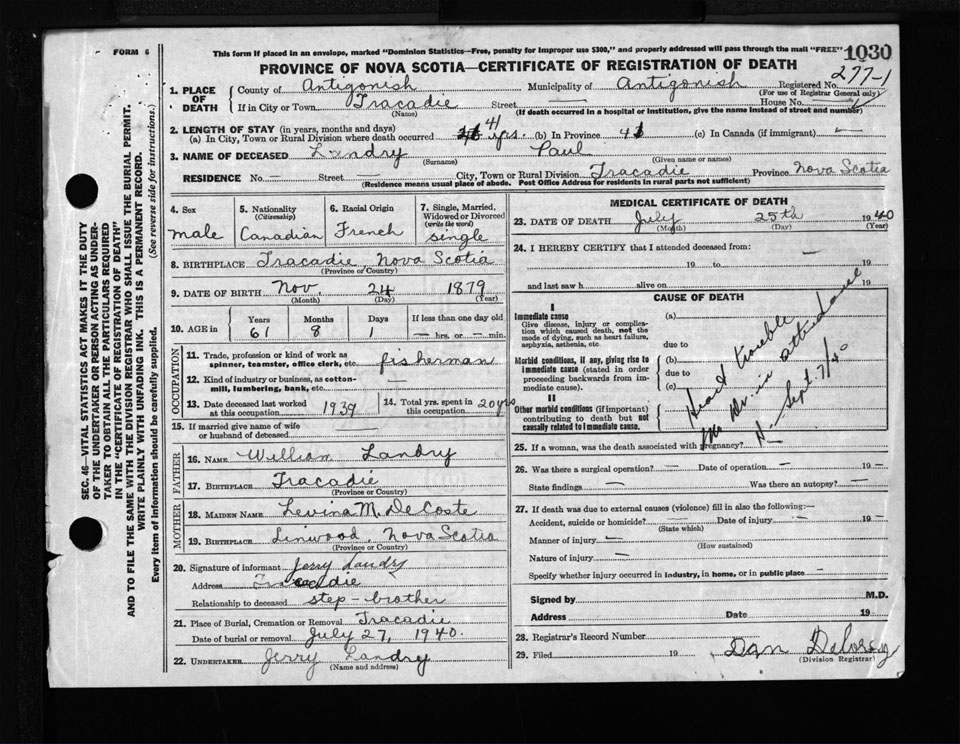 FORM 6
This form if placed in an envelope, marked "Dominion Statistics—Free, penalty for improper use $300," and properly addressed will pass through the mail "FREE"
1030
PROVINCE OF NOVA SCOTIA—CERTIFICATE OF REGISTRATION OF DEATH
277-1
1. PLACE OF DEATH County of Antigonish Municipality of Antigonish Registered No.
(For use of Registrar General only)
If in City or Town Tracadie Street — House No. —
(Name) (If death occurred in a hospital or institution, give the name instead of street and number)
2. LENGTH OF STAY (in years, months and days)
(a) In City, Town or Rural Division where death occurred 41 yrs. (b) In Province 41 (c) In Canada (if immigrant) —
3. NAME OF DECEASED Landry Paul
(Surname) (Given name or names)
RESIDENCE No. — Street — City, Town or Rural Division Tracadie Province Nova Scotia
(Residence means usual place of abode. Post Office Address for residents in rural parts not sufficient)
SEC. 46—VITAL STATISTICS ACT MAKES IT THE DUTY
OF THE UNDERTAKER OR PERSON ACTING AS UNDER-
TAKER TO OBTAIN ALL THE PARTICULARS REQUIRED
IN THE "CERTIFICATE OF REGISTRATION OF DEATH"
AND TO FILE THE SAME WITH THE DIVISION REGISTRAR WHO SHALL ISSUE THE BURIAL PERMIT.
WRITE PLAINLY WITH UNFADING INK. THIS IS A PERMANENT RECORD.
Every item of information should be carefully supplied. (See reverse side for instructions.)
4. Sex 5. Nationality (Citizenship) 6. Racial Origin 7. Single, Married, Widowed or Divorced (write the word)
male Canadian French single
8. BIRTHPLACE Tracadie, Nova Scotia
(Province or Country)
9. DATE OF BIRTH Nov. 24 1879
(Month) (Day) (Year)
10. AGE in Years Months Days If less than one day old
61 8 1 — hrs. or — min.
OCCUPATION
11. Trade, profession or kind of work as spinner, teamster, office clerk, etc. fisherman
12. Kind of industry or business, as cotton-mill, lumbering, bank, etc. —
13. Date deceased last worked at this occupation 1939 14. Total yrs. spent in this occupation 20 yrs
15. If married give name of wife or husband of deceased —
FATHER
16. NAME William Landry
17. BIRTHPLACE Tracadie
(Province or Country)
MOTHER
18. MAIDEN NAME Levina M. DeCoste
19. BIRTHPLACE Linwood, Nova Scotia
(Province or Country)
20. Signature of informant Jerry Landry
Address Tracadie
Relationship to deceased step-brother
21. Place of Burial, Cremation or Removal Tracadie
Date of burial or removal July 27, 1940.
22. UNDERTAKER Jerry Landry
(Name and address)
MEDICAL CERTIFICATE OF DEATH
23. DATE OF DEATH July 25th 1940
(Month) (Day) (Year)
24. I HEREBY CERTIFY that I attended deceased from: —
19 to 19
and last saw h alive on 19
CAUSE OF DEATH
I
Immediate cause (a)
Give disease, injury or complication which caused death, not the mode of dying, such as heart failure, asphyxia, asthenia, etc. due to
Morbid conditions, if any, giving rise to immediate cause (stated in order proceeding backwards from immediate cause). (b)
due to
(c)
II
Other morbid conditions (if important) contributing to death but not causally related to immediate cause.
Heart trouble
No Dr. in attendance
Sept. 7/40
25. If a woman, was the death associated with pregnancy? —
26. Was there a surgical operation? — Date of operation — 19 —
State findings — Was there an autopsy? —
27. If death was due to external causes (violence) fill in also the following:—
Accident, suicide or homicide? — Date of injury — 19 —
(State which)
Manner of injury —
(How sustained)
Nature of injury —
Specify whether injury occurred in industry, in home, or in public place —
Signed by M.D.
Address Date 19
28. Registrar's Record Number
29. Filed 19 Dan Delorey
(Division Registrar)